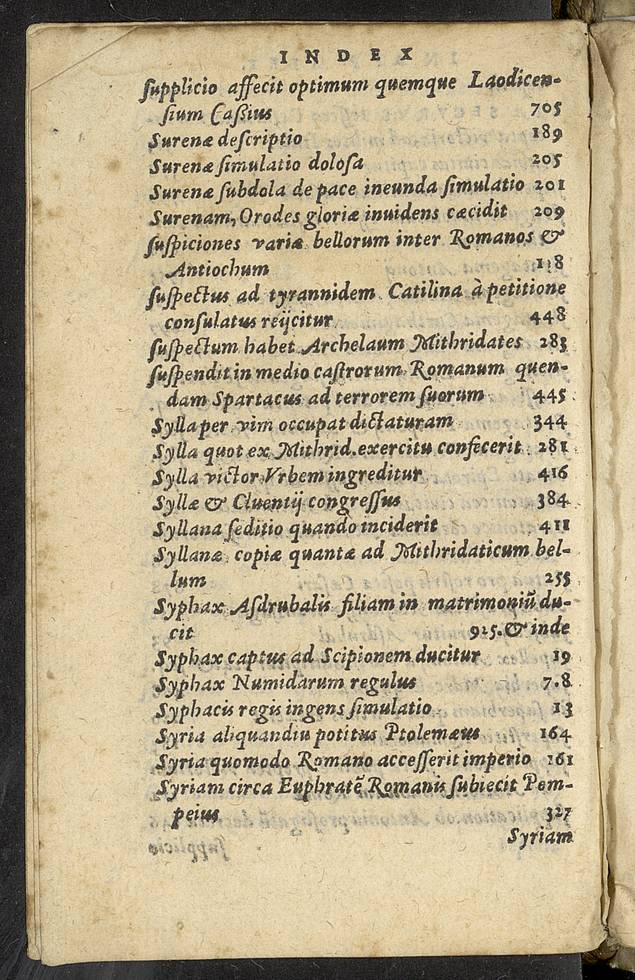 INDEX
ſupplicio affecit optimum quemque Laodicen-
ſium Caſsius 705
Surenæ deſcriptio 189
Surenæ ſimulatio doloſa 205
Surenæ ſubdola de pace ineunda ſimulatio 201
Surenam, Orodes gloriæ inuidens cæcidit 209
ſuſpiciones variæ bellorum inter Romanos &
Antiochum 118
ſuſpectus ad tyrannidem Catilina à petitione
conſulatus reijcitur 448
ſuſpectum habet Archelaum Mithridates 283
ſuſpendit in medio caſtrorum Romanum quen-
dam Spartacus ad terrorem ſuorum 445
Sylla per vim occupat dictaturam 344
Sylla quot ex Mithrid. exercitu confecerit 281
Sylla victor Vrbem ingreditur 416
Syllæ & Cluentij congreſſus 384
Syllana ſeditio quando inciderit 411
Syllanæ copiæ quantæ ad Mithridaticum bel-
lum 255
Syphax Aſdrubalis filiam in matrimoniũ du-
cit 9 15. & inde
Syphax captus ad Scipionem ducitur 19
Syphax Numidarum regulus 7.8
Syphacis regis ingens ſimulatio 13
Syria aliquandiu potitus Ptolemæus 164
Syria quomodo Romano acceſſerit imperio 161
Syriam circa Euphratẽ Romanis ſubiecit Pom-
peius 327
Syriam